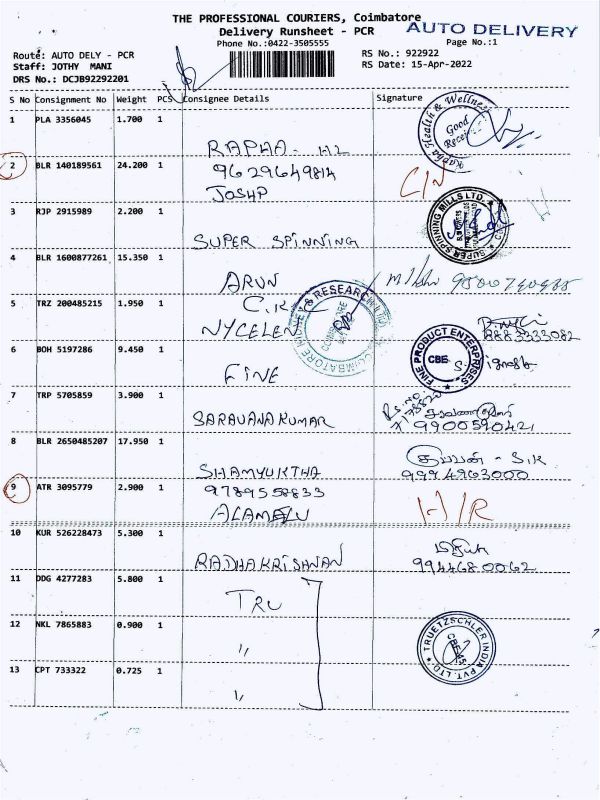 THE PROFESSIONAL COURIERS, Coimbatore
Delivery Runsheet - PCR
AUTO DELIVERY
Phone No.:0422-3505555
Page No.:1
Route: AUTO DELY - PCR
RS No.: 922922
Staff: JOTHY MANI
RS Date: 15-Apr-2022
DRS No.: DCJB92292201
S No Consignment No Weight PCS Consignee Details Signature
1 PLA 3356045 1.700 1
RAPHA - H2
Health & Wellness
Good
2 BLR 140189561 24.200 1 9629649814
JOSHP
3 RJP 2915989 2.200 1
SUPER SPINNING
SUPER SPINNING MILLS LTD.
4 BLR 1600877261 15.350 1
ARUN
5 TRZ 200485215 1.950 1 C.K
NYCELEN
8883333082
6 BOH 5197286 9.450 1
FINE
FINE PRODUCT ENTERPRISES
CBE
7 TRP 5705859 3.900 1
SARAVANAKUMAR
9900590421
8 BLR 2650485207 17.950 1
SHAMYUKTHA
9994963000
9 ATR 3095779 2.900 1 9789558833
ALAMELU H/R
10 KUR 526228473 5.300 1
RADHAKRISHNAN
9944680062
11 DDG 4277283 5.800 1
TRU
12 NKL 7865883 0.900 1
〃
TRUETZSCHLER INDIA PVT. LTD
13 CPT 733322 0.725 1
〃